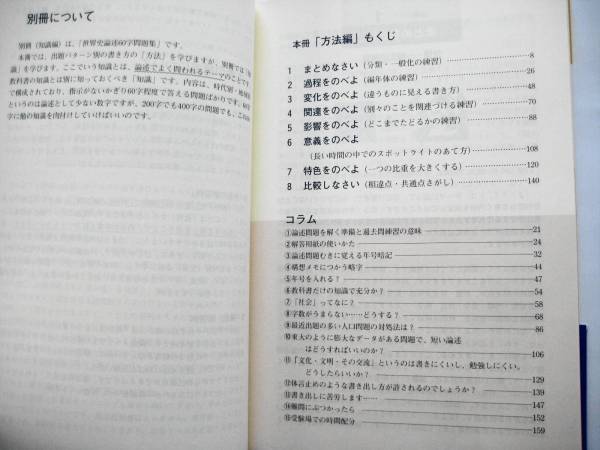 別冊について
別冊（知識編）は，『世界史論述60字問題集』です。
本冊では，出題パターン別の書き方の「方法」を学びますが，別冊では「知
識」を学びます。ここでいう知識とは，論述でよく問われるテーマのことで
教科書の知識とは別に知っておくべき「知識」です。内容は，時代別・地域
で構成されており，指示がないかぎり60字程度で答える問題ばかりです。60
というのは論述として少ない数字ですが，200字でも400字の問題でも，この60
字に他の知識を肉付けしていけばいいのです。
本冊「方法編」もくじ
1 まとめなさい（分類・一般化の練習）……8
2 過程をのべよ（編年体の練習）……26
3 変化をのべよ（違うものに見える書き方）……48
4 関連をのべよ（別々のことを関連づける練習）……70
5 影響をのべよ（どこまでたどるかの練習）……88
6 意義をのべよ
（長い時間の中でのスポットライトのあて方）……108
7 特色をのべよ（一つの比重を大きくする）……120
8 比較しなさい（相違点・共通点さがし）……140
コラム
①論述問題を解く準備と過去問練習の意味……21
②解答用紙の使いかた……24
③論述問題むきに覚える年号暗記……32
④構想メモにつかう略字……44
⑤年号を入れる？……47
⑥教科書だけの知識で充分か？……54
⑦「社会」ってなに？……58
⑧字数がうまらない……どうする？……68
⑨最近出題の多い人口問題の対処法は？……86
⑩東大のように膨大なデータがある問題で，短い論述
はどうすればいいのか？……106
⑪「文化・文明・その交流」というのは書きにくいし，勉強しにくい。
どうしたらいいか？……129
⑫体言止めのような書き出し方が許されるのでしょうか？……139
⑬書き出しに苦労します……147
⑭難問にぶつかったら……152
⑮受験場での時間配分……159